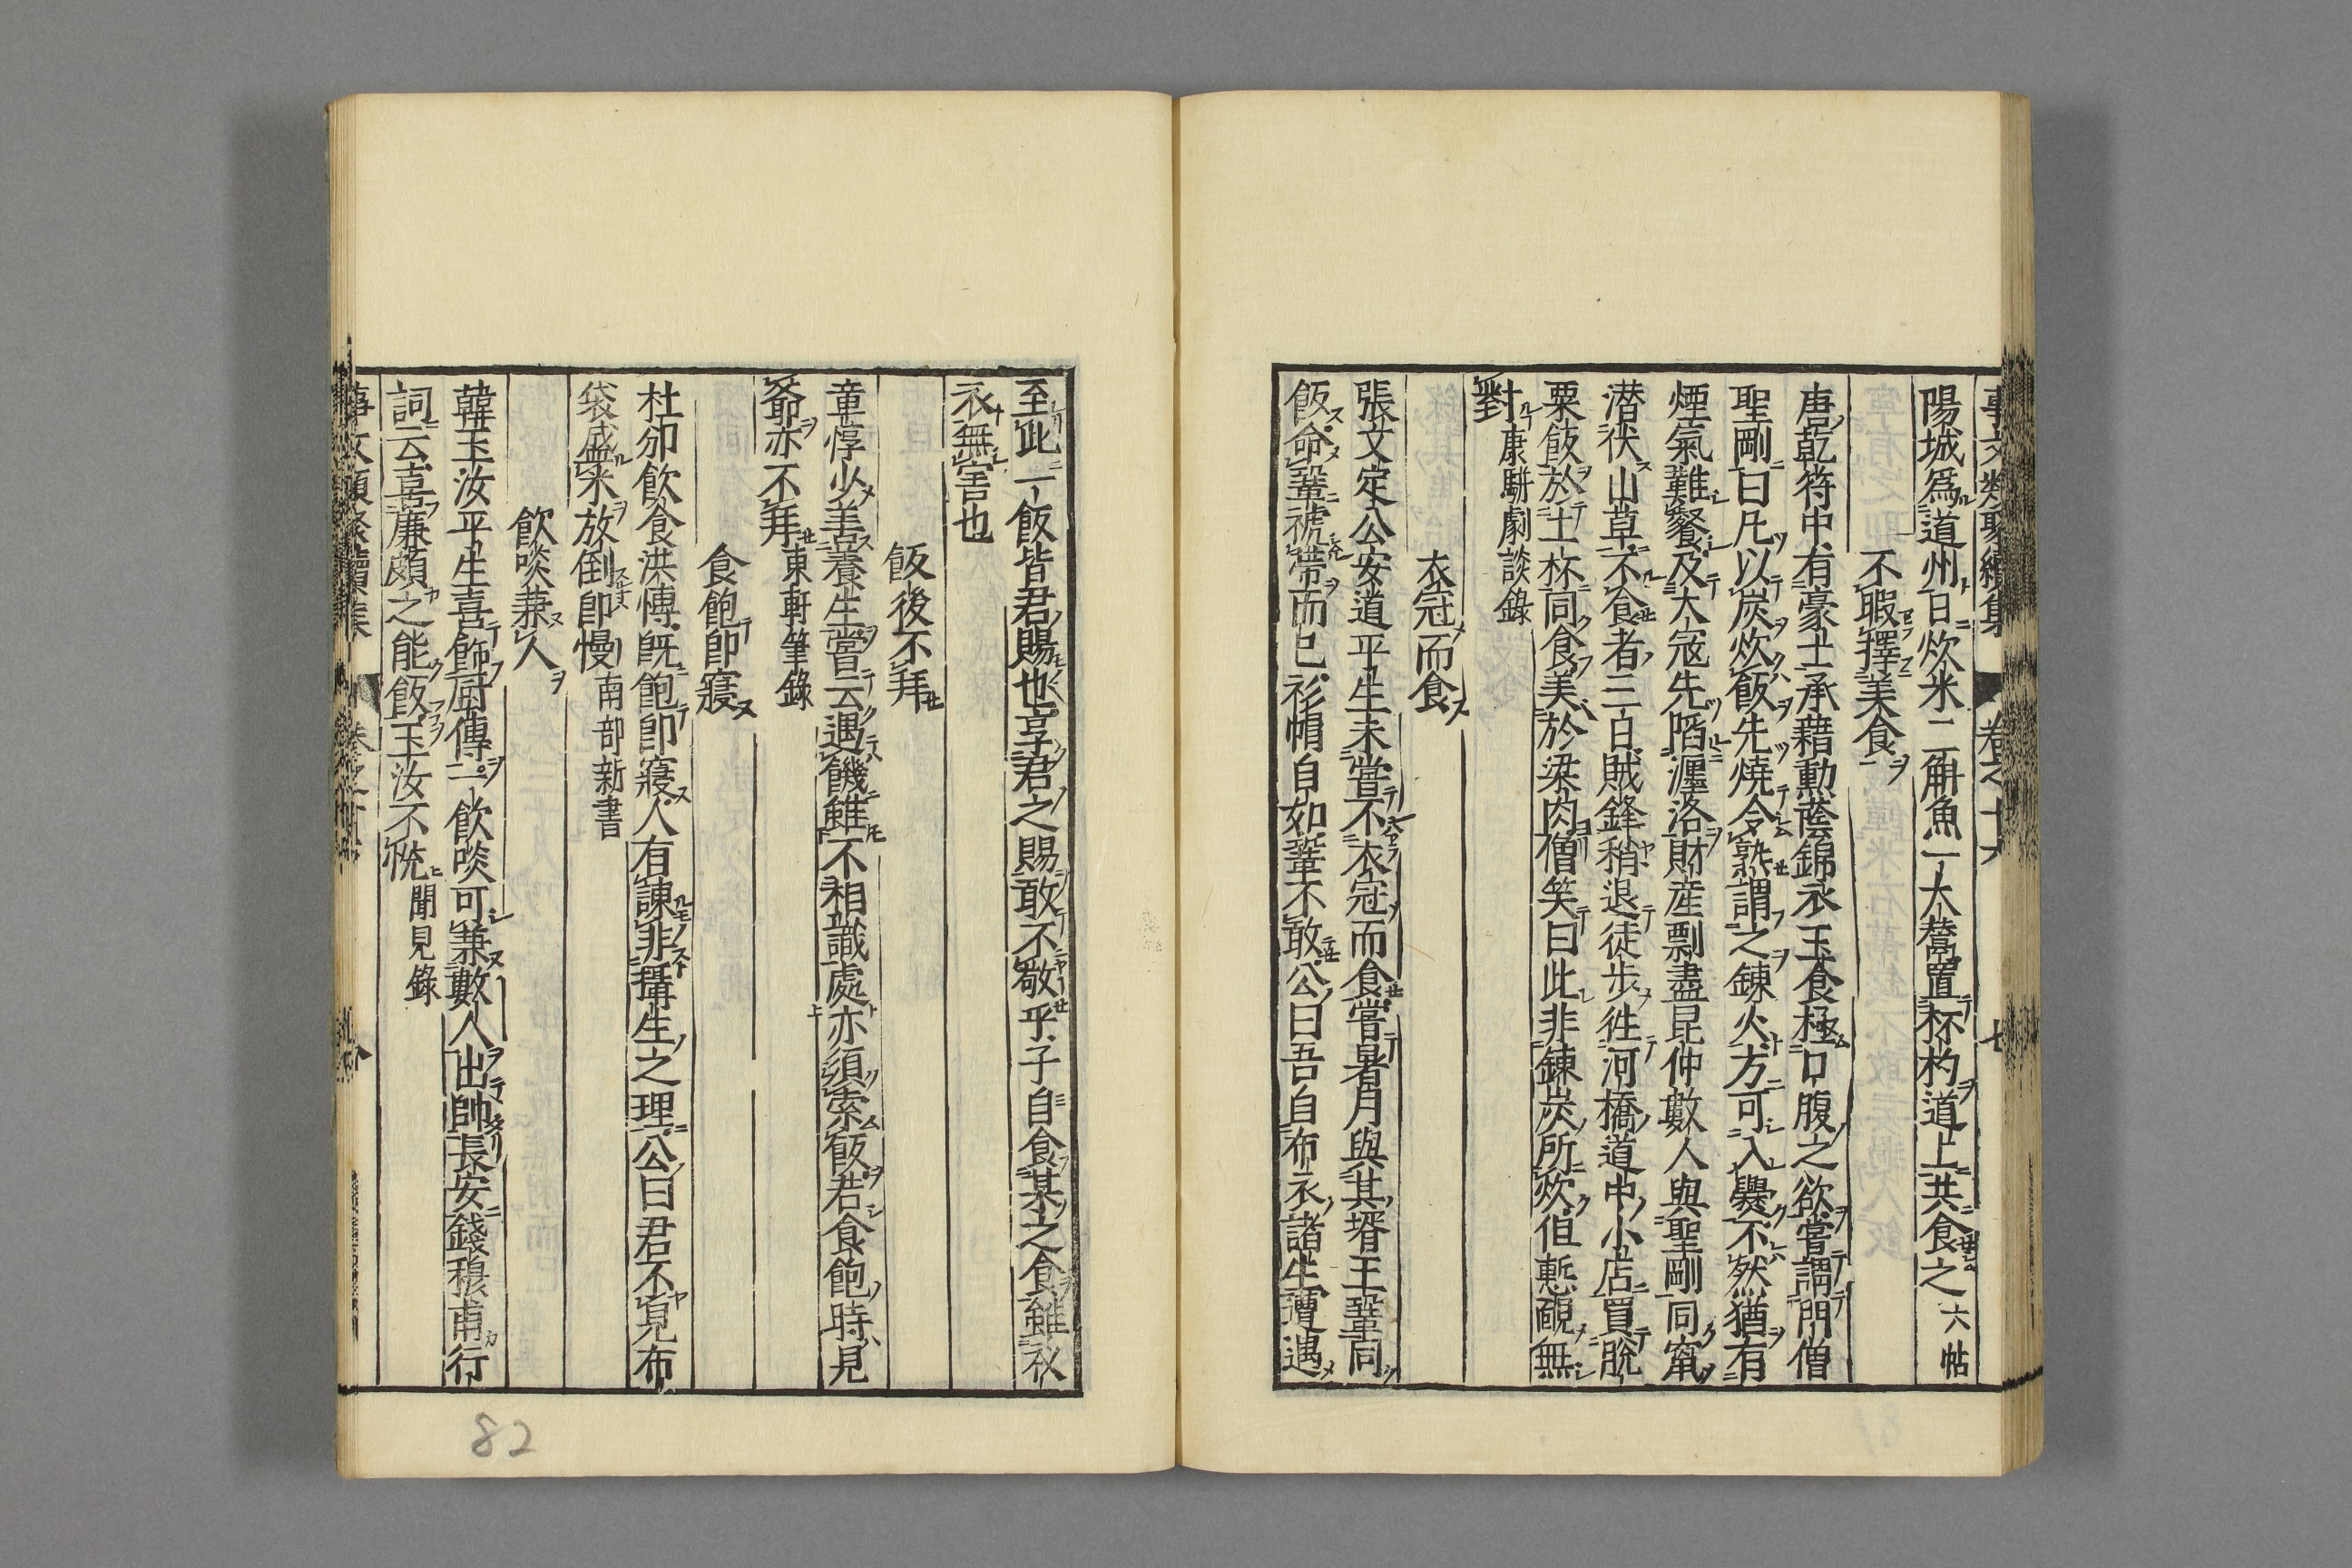 陽城爲道州日炊米二斛魚一大鬵置杯杓道上共食之 六帖
不暇擇美食
唐乾符中有豪士承藉勳蔭錦衣玉食極口腹之欲嘗謂門僧
聖剛曰凡以炭炊飯先燒令熟謂之錬火方可入爨不然猶有
煙氣難餐及大寇先陷瀍洛財産剽盡昆仲數人與聖剛同竄
潜伏山草不食者三日賊鋒稍退徒步徃河橋道中小店買脫
粟飯於土杯同食美於梁肉僧笑曰此非錬炭所炊但慙靦無
對 康駢劇談錄
衣冠而食
張文定公安道平生未嘗不衣冠而食嘗暑月與其壻王鞏同
飯命鞏褫帶而已衫帽自如鞏不敢公曰吾自布衣諸生遭遇
至此一飯皆君賜也享君之賜敢不敬乎子自食某之食雖衩
衣無害也
飯後不拜
章惇少美善養生嘗云遇饑雖不相識處亦須索飯若食飽時見
爺亦不拜 東軒筆錄
食飽卽寢
杜邠飲食洪愽旣飽卽寢人有諫非攝生之理公曰君不見布
袋盛米放倒卽慢 南部新書
飲啖兼人
韓玉汝平生喜飾厨傳一飲啖可兼數人出帥長安錢穆甫行
詞云喜廉頗之能飯玉汝不恱 聞見錄
82